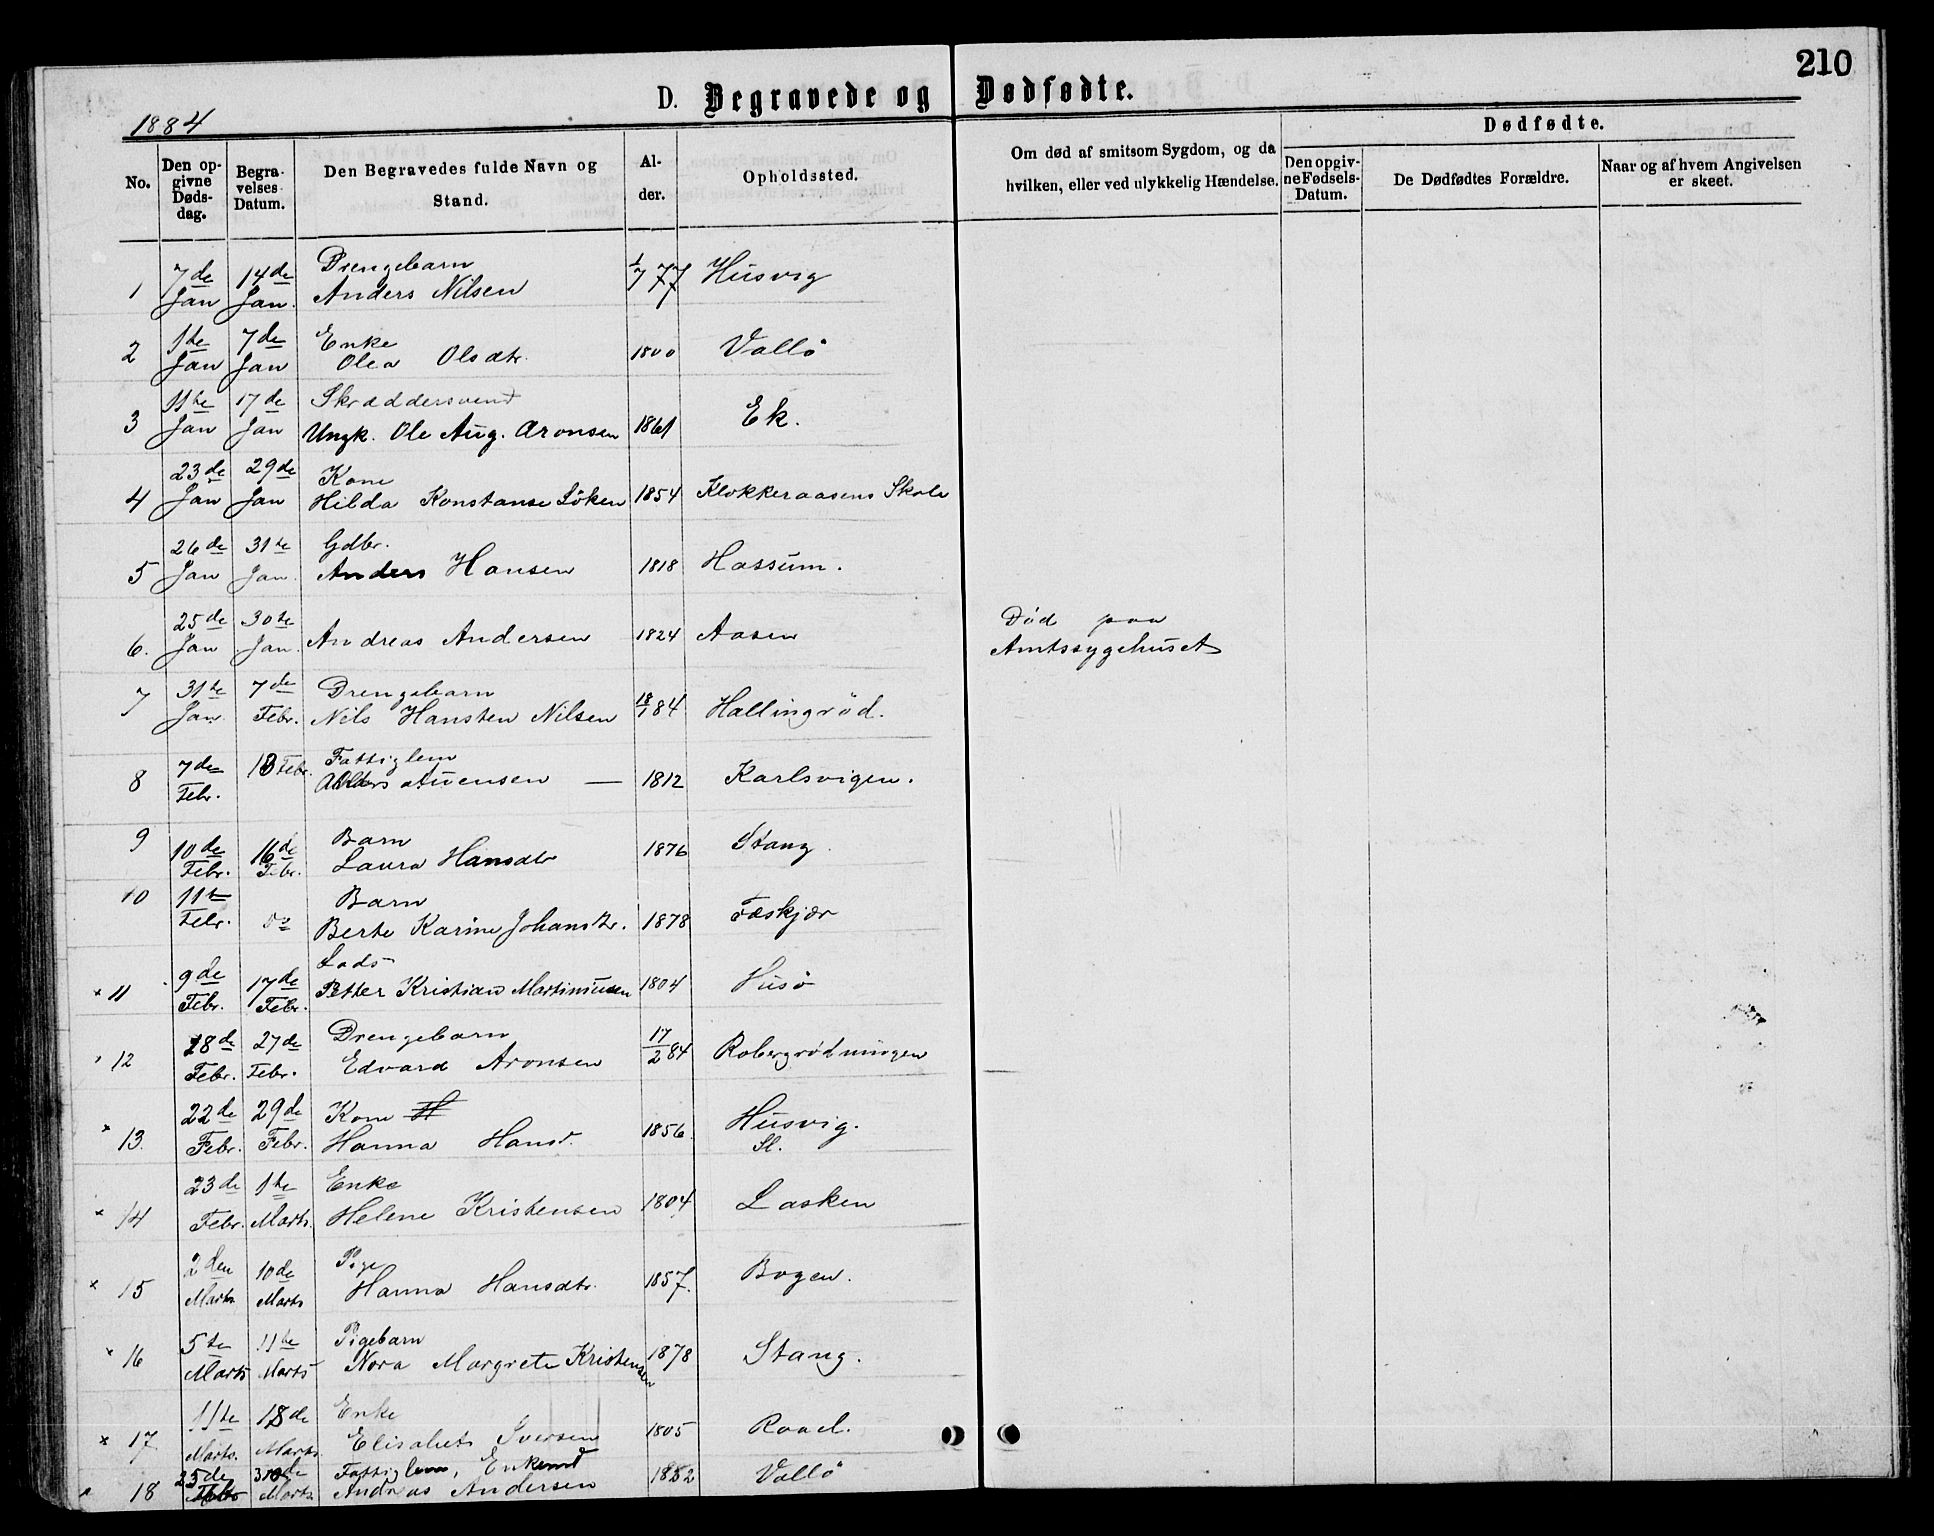 210
D. Begravede og Dødfødte.
1884
No.
Den opgivne Dødsdag.
Begravelses Datum.
Den Begravedes fulde Navn og Stand.
Alder.
Opholdssted.
Om død af smitsom Sygdom, og da hvilken, eller ved ulykkelig Hændelse.
Dødfødte.
Den opgivne Fødsels-Datum.
De Dødfødtes Forældre.
Naar og af hvem Angivelsen er skeet.
1 7de Jan 14de Jan. Drengebarn Anders Nilsen 1/7 77 Husvig
2 1te Jan 7de Jan Enke Olea Olsdtr. 1800 Vallö
3 11te Jan 17de Jan Skræddersvend Ungk. Ole Aug. Aronsen 1861 Ek.
4 23de Jan 29de Jan Kone Hilda Konstanse Löken 1854 Klokkeraasens Skole
5 26de Jan 31te Jan. Gdbr. Anders Hansen 1818 Hassum.
6. 25de Jan 30te Jan. Andreas Andersen 1824 Aasen Död paa Amtssygehuset
7 31te Jan. 7de Febr. Drengebarn Nils Hansten Nilsen 18/1 84 Hallingröd.
8 7de Febr. 13 Febr. Fattiglem 1812 Karlsvigen.
9 10de Febr. 16de Febr. Barn Laura Hansdtr 1876 Stang.
10 11te Febr. Do Barn Berte Karine Johansdtr. 1878 Fæskjær
× 11 9de Febr. 17de Febr. Lods Petter Kristian Martinusen 1804 Husö
12 18de Febr. 27de Febr. Drengebarn Edvard Aronsen 17/2 84 Robergrödningen
× 13. 22de Febr. 29de Febr. Kone Hanna Hansd. 1856. Husvig. Sl.
× 14 23de Febr. 1te Marts. Enke Helene Kristensen 1804 Lasken
× 15 2den Marts 10de Marts Pige Hanna Hansdtr. 1857. Bogen.
× 16 5te Marts 11te Marts Pigebarn Nora Margrete Kristensen 1878 Stang.
× 17 11te Marts. 18de Marts. Enke Elisabet Iversen 1805 Rael.
18 25de Marts Fattiglem, Enkemd Andreas Andersen Vallö